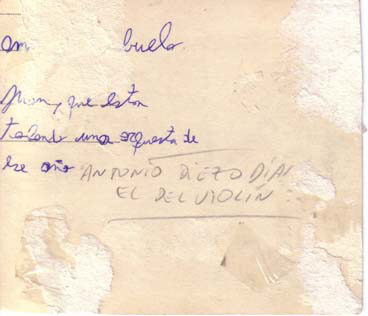 buelo
que estan
tocando una orquesta de
ese año ANTONIO DIEZO DÍAS
EL DEL VIOLÍN